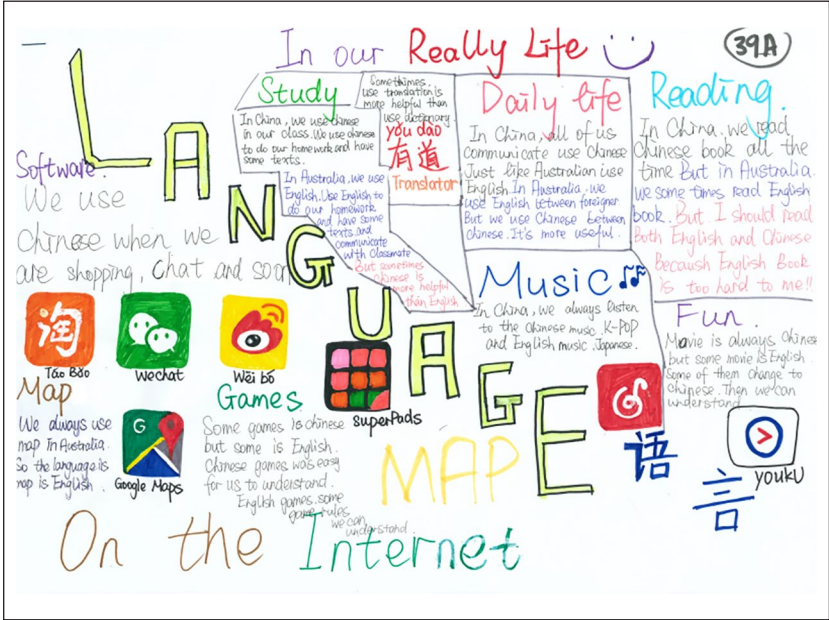 In our Really Life
39A
LANGUAGE
MAP
语言
Study
In China, we use chinese
in our class. We use chinese
to do our homework and have
some texts.
In Australia, we use
English. Use English to
do our homework
and have some
texts and
communicate
with Classmate
But sometimes
Chinese is
more helpful
than English
Somethimes.
use translation is
more helpful than
use dictionary.
yǒu dào
有道
Translator
Daily life
In China, all of us
communicate use Chinese
Just like Australian use
English. In Australia. we
use English between foreigner
But we use Chinese between
Chinese. It's more useful.
Reading.
In China. we read
Chinese book all the
time But in Australia
we some times read English
book. But I should read
Both English and Chinese
Becaush English Book
is too hard to me!!
Software.
We use
Chinese when we
are shopping, chat and so on
淘
Táo Bǎo
Wechat
Wēi bó
Music
In China, we always listen
to the Chinese music. K-POP
and English music. Japanese.
Fun.
Movie is always Chinese
but some movie is English.
Some of them change to
Chinese. Then we can
understand
youku
Map
We always use
map In Australia.
So the language is
map is English.
G
Google Maps
Games
Some games is chinese
but some is English.
Chinese games was easy
for us to understand.
English games. some
game rules
we can
understand
superPads
On the Internet